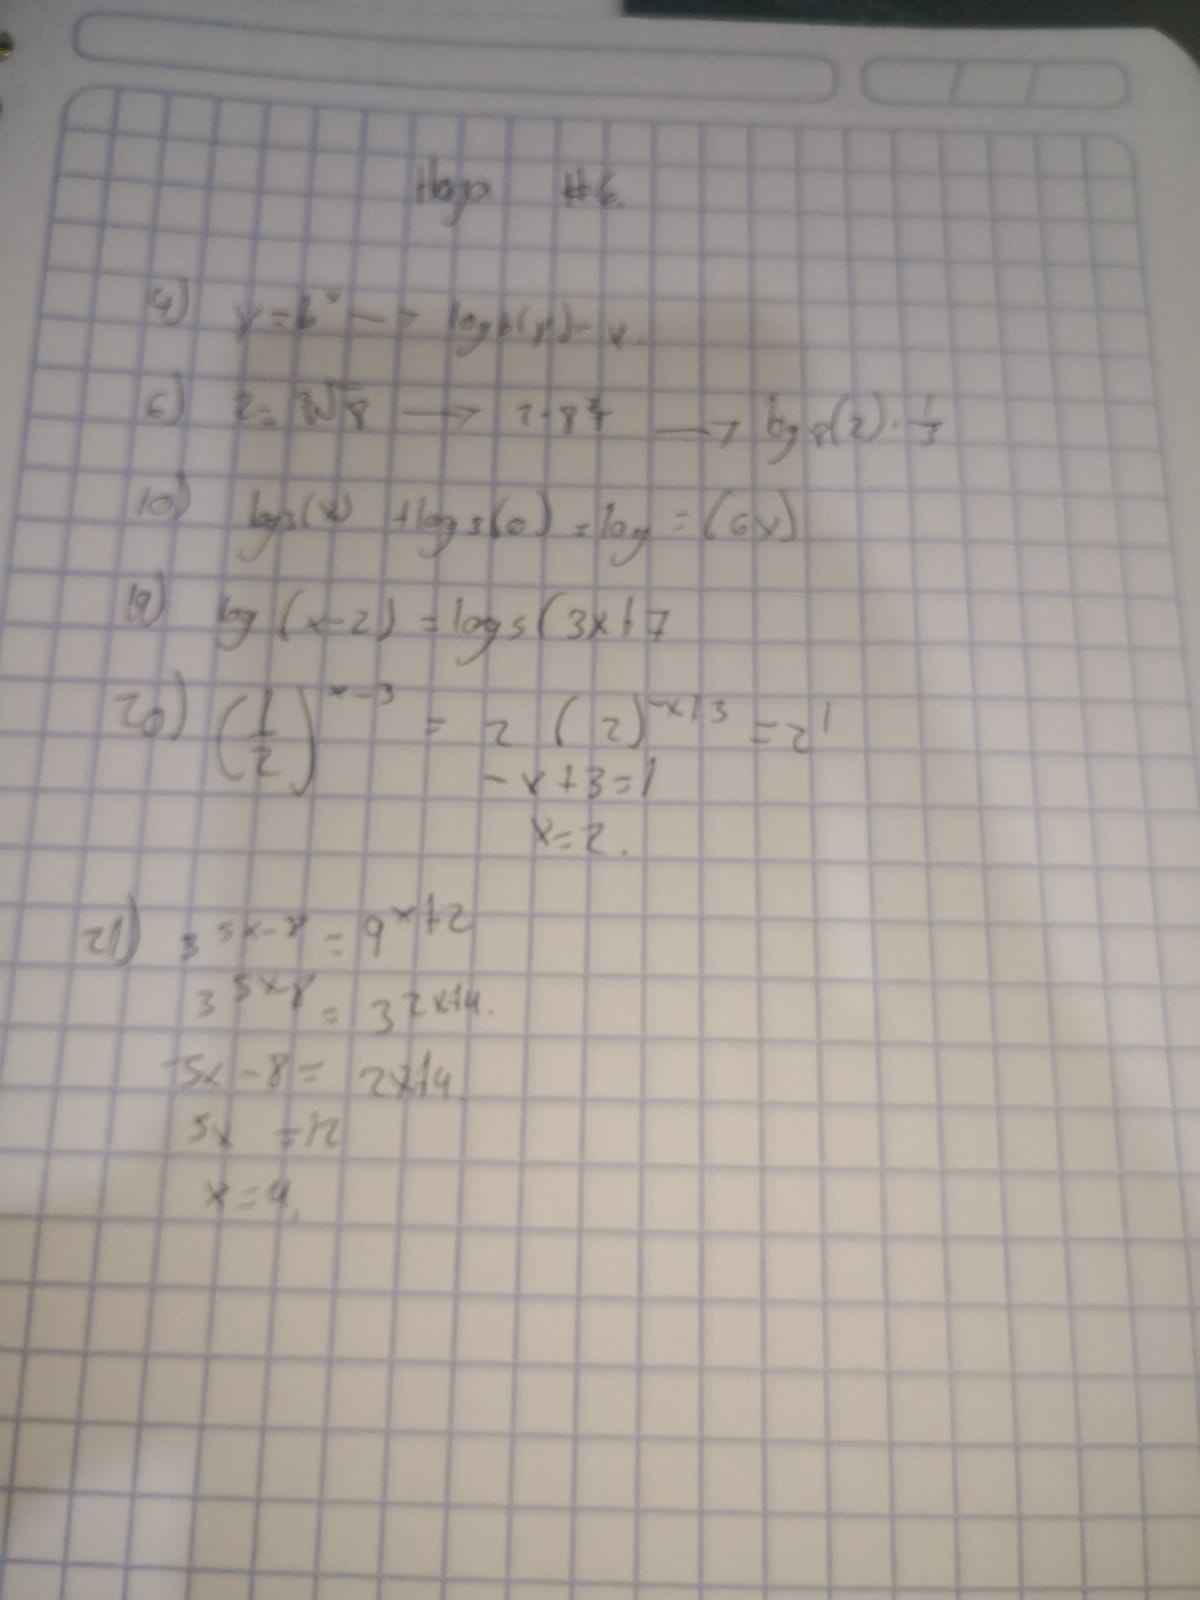 Hoja #6.
4) y = b^x → log b(y) = x.
6) 2 = ³√8 → 2 = 8^ → log 8(2) · 1/3
10) log3(x) + log 3(6) = log = (6x)
19) log (x-2) = log 5 (3x+7
20) (1/2)^x-3 = 2 (2)^-x+3 = 2^1
-x+3=1
x=2.
21) 3^5x-8 = 9^x+2
3^5x-8 = 3^2x+4.
5x-8 = 2x+4
5x = 12
x=4.